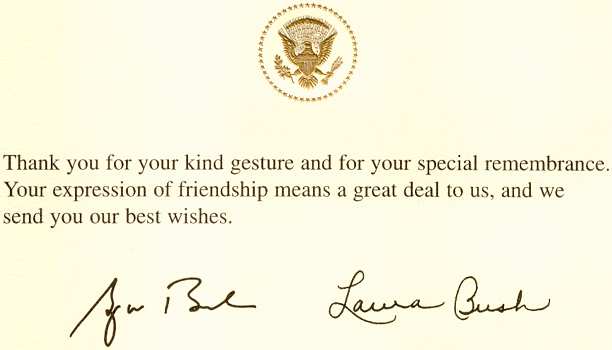 Thank you for your kind gesture and for your special remembrance.
Your expression of friendship means a great deal to us, and we
send you our best wishes.
Laura Bush